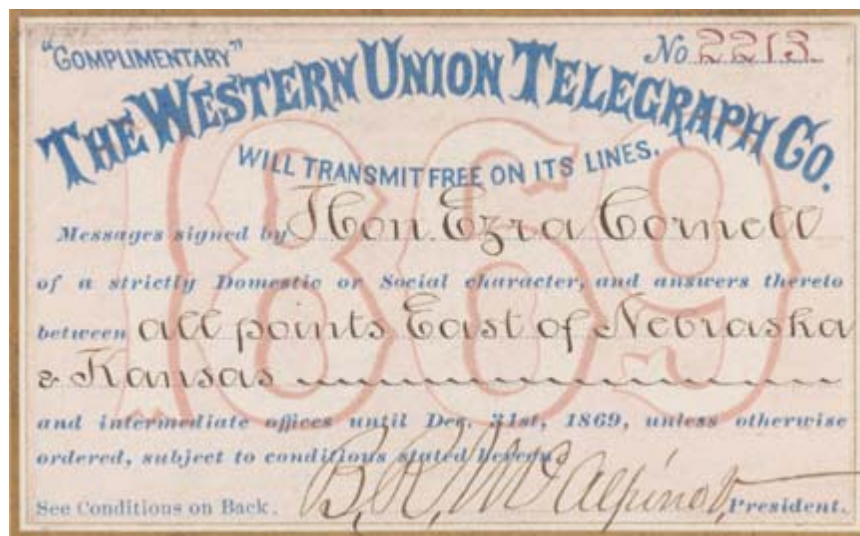 "COMPLIMENTARY"
No 2213
THE WESTERN UNION TELEGRAPH CO.
WILL TRANSMIT FREE ON ITS LINES.
1869
Messages signed by Hon. Ezra Cornell
of a strictly Domestic or Social character, and answers thereto
between all points East of Nebraska
& Kansas
and intermediate offices until Dec. 31st, 1869, unless otherwise
ordered, subject to conditions stated hereon.
B. R. McAlpine V. President.
See Conditions on Back.